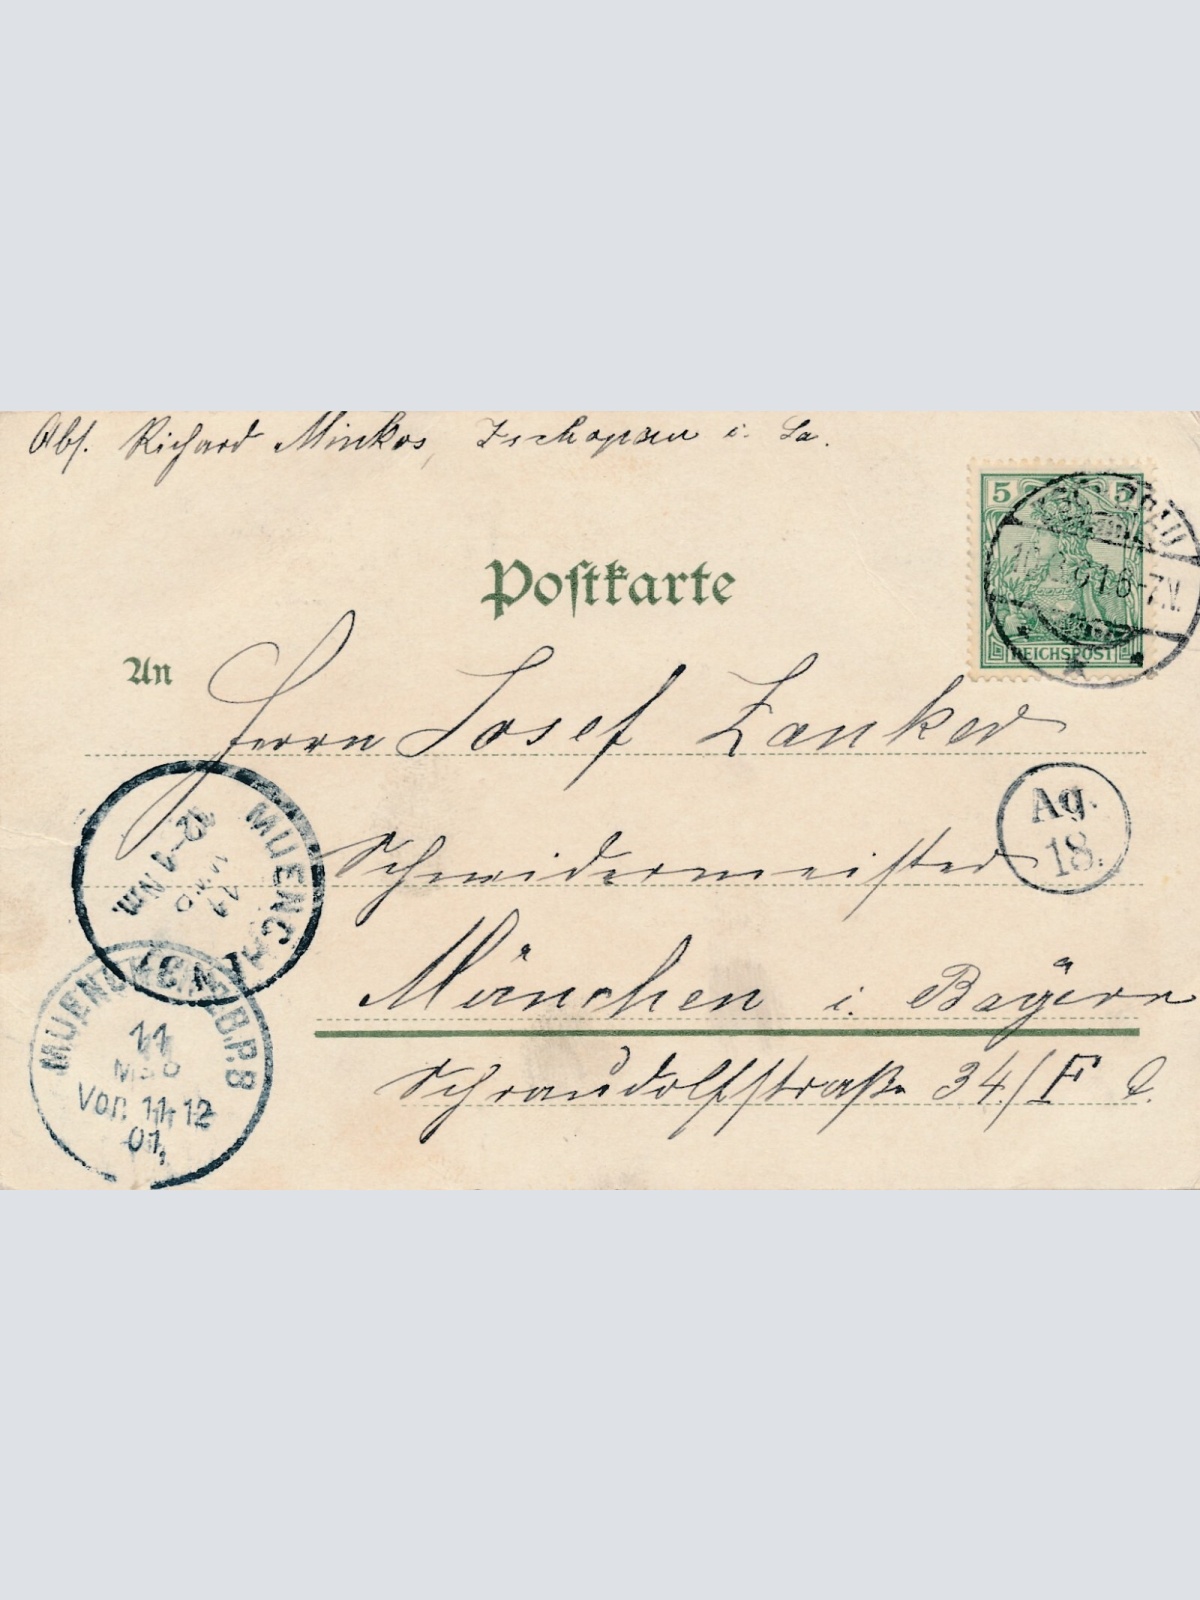 Abs. Richard Minkos, Zschopau i. Sa.
5 5
01 6-7.V.
REICHSPOST
Postkarte
An
Herrn Josef Zanker
Ag.
18.
Schneidermeister
München i. Bayern
Schraudolfstraße 34/F
MUENCHEN
12-1 Nm.
MUENCHEN B.P.B
11
Vor. 11-12
01